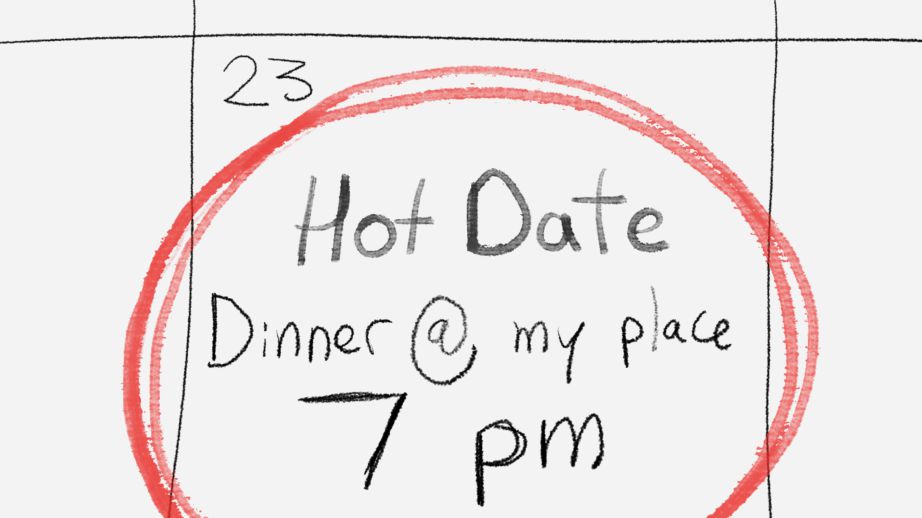 23
Hot Date
Dinner @ my place
7 pm